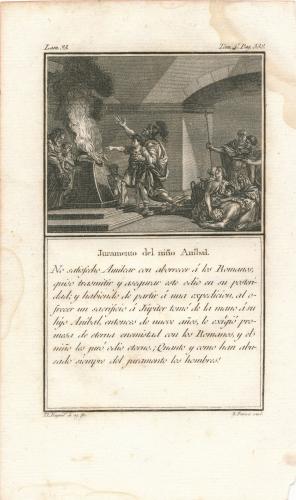 Juramento del niño Aníbal.
No satisfecho Amilcar con aborrecer á los Romanos,
quiso trasmitir y asegurar este odio en su posteri-
dad; y habiendo de partir á una expedicion, al o-
frecer un sacrificio á Júpiter tomó de la mano á su
hijo Aníbal, entonces de nueve años, le exigió pro-
mesa de eterna enemistad con los Romanos, y el
niño les juró odio eterno. ¡Quanto y como han abu-
sado siempre del juramento los hombres!